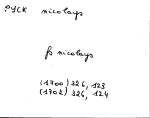 РУСК nicolays
fs nicolays
(1700) 326, 123
(1702) 326, 124